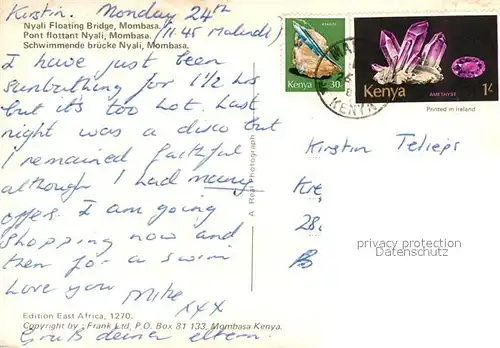 Kirstin. Monday 24th
Nyali Floating Bridge, Mombasa.
Pont flottant Nyali, Mombasa.
Schwimmende brücke Nyali, Mombasa.
(11.45 Malindi)
I have just been
sunbathing for 1½ hrs
but it's too hot. Last
night was a disco but
I remained faithful
although I had many
offers. I am going
shopping now and
then for a swim
Love you Mike
xxx
Edition East Africa, 1270.
Copyright by: Frank Ltd, P.O. Box 81 133, Mombasa Kenya.
Gruß deiner eltern.
A Real Photograph
Kenya 30c
KENYA
Kenya
AMETHYST
1/-
Printed in Ireland
Kirstin Telieps
Kre
28.
B
privacy protection
Datenschutz